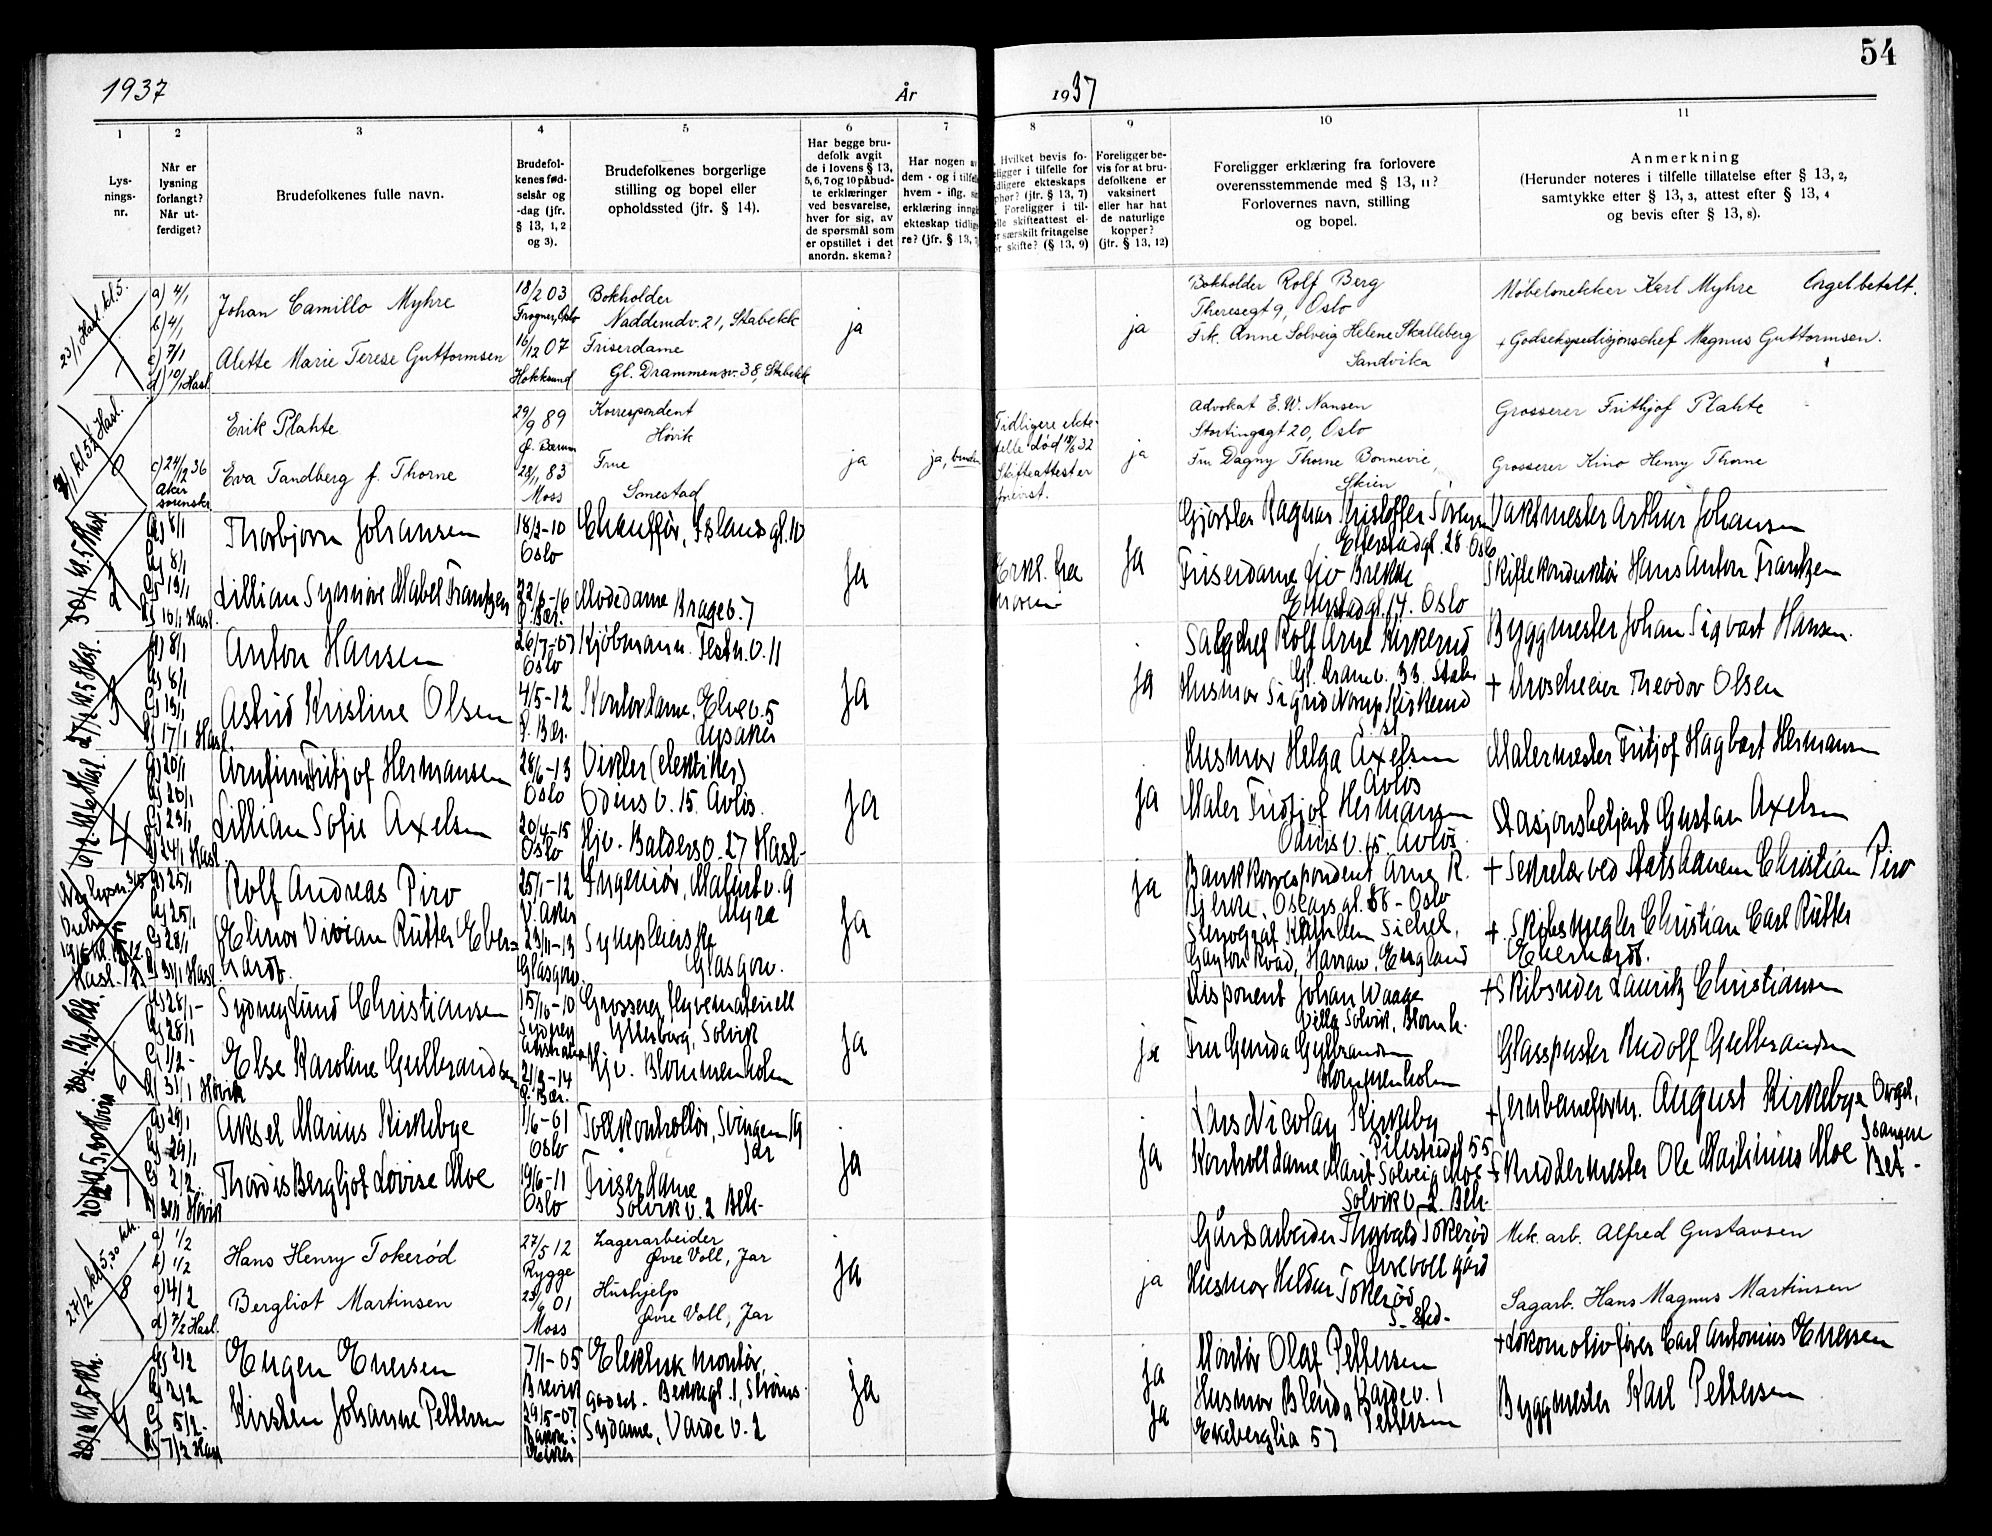 54
1937
År
1937
1
2
3
4
5
6
7
8
9
10
11
Lys-
nings-
nr.
Når er
lysning
forlangt?
Når ut-
ferdiget?
Brudefolkenes fulle navn.
Brudefol-
kenes fød-
selsår og
-dag (jfr.
§ 13, 1, 2
og 3).
Brudefolkenes borgerlige
stilling og bopel eller
opholdssted (jfr. § 14).
Har begge bru-
defolk avgit
de i lovens § 13,
5, 6, 7 og 10 påbud-
te erklæringer
ved besvarelse,
hver for sig, av
de spørsmål som
er opstillet i det
anordn. skema?
Har nogen av
dem - og i tilfelle
hvem - iflg.
erklæring inngå
ekteskap tidlige-
re? (jfr. § 13,
Hvilket bevis fo-
religger i tilfelle for
tidligere ekteskaps
ophør? (jfr. § 13, 7)
Foreligger i til-
felle skifteattest el-
er særskilt fritagelse
or skifte? (§ 13, 9)
Foreligger be-
vis for at bru-
defolkene er
vaksinert
eller har hat
de naturlige
kopper?
(jfr. § 13, 12)
Foreligger erklæring fra forlovere
overensstemmende med § 13, 11?
Forlovernes navn, stilling
og bopel.
Anmerkning
(Herunder noteres i tilfelle tillatelse efter § 13, 2,
samtykke efter § 13, 3, attest efter § 13, 4
og bevis efter § 13, 8).
23/1 Hasl. kl. 5.
1
a) 4/1
b) 4/1
c) 7/1
d) 10/1 Hasl.
Johan Camillo Myhre
Alette Marie Terese Guttormsen
18/2 03
Frogner, Oslo
16/12 07
Hokksund
Bokholder
Naddemdv. 21, Stabekk
Friserdame
Gl. Drammensv. 38, Stabekk
ja
ja
Bokholder Rolf Berg
Theresegt 9, Oslo
Frk. Anne Solveig Helene Skalleberg
Sandvika
Møbelsnekker Karl Myhre Orgel betalt.
+ Godsekspedisjonschef Magnus Guttormsen.
c) 24/2 36
Aker
sorenskr.
Erik Plahte
Eva Tandberg f. Thorne
29/9 89
Ø. Bærum
28/11 83
Moss
Korrespondent
Høvik
Frue
Smestad
ja
ja, bruden
Tidligere ekte-
felle død 18/6 32
Skifteattest er
ja
Advokat E. W. Nansen
Stortingsgt 20, Oslo
Fru Dagny Thorne Bonnevie,
Skien
Grosserer Frithjof Plahte
Grosserer Kino Henry Thorne
30/1 kl. 5 Hasl.
2
a) 8/1
b) 8/1
c) 13/1
d) 10/1 Hasl.
Thorbjørn Johansen
Lillian Synnøve Mabel Frantzen
18/2-10
Oslo
22/3-16
Ø. Bær.
Chauffør, Islands gt. 10
Motedame Bragev. 7
Ja
Ja
Gjørtler Ragnar Kristoffer Sørensen
Etterstadgt. 28 Oslo
Friserdame Liv Brekke
Etterstadgt. 14. Oslo
Vaktmester Arthur Johansen
Skiftekonduktør Hans Anton Frantzen
27/2 kl. 5 Hasl.
3
a) 8/1
b) 8/1
c) 13/1
d) 17/1 Hasl.
Anton Hansen
Astrid Kristine Olsen
26/7-07
Oslo
4/5-12
Ø. Bær.
Kjøbmann. Festn.v. 11
Kontordame, Elvev. 5
Lysaker
Ja
Ja
Salgschef Rolf Arne Kirkerud
Gl. Dram.v. 33. Stab.
Husmor Sigrid Norup Kirkerud
S. st.
Byggmester Johan Sigvart Hansen.
+ Droscheeier Theodor Olsen
6/2 kl. 6 Hasl.
4
a) 20/1
b) 20/1
c) 23/1
d) 24/1 Hasl.
Arnfinn Fritjof Hermansen
Lillian Sofie Axelsen
28/6-13
Oslo
20/4-15
Oslo
Vikler (elektriker)
Odins v. 15. Avløs.
Hjv. Baldersv. 27 Hasl-
Ja
Ja
Husmor Helga Axelsen
Avløs
Maler Fridtjof Hermansen
Odins v. 15 Avløs.
Malermester Fritjof Hagbart Hermansen
Stasjonsbetjent Gustav Axelsen
5
a) 25/1
b) 25/1
c) 28/1
d) 31/1 Hasl.
Rolf Andreas Piro
Elinor Vivian Rütter Eber-
hardt.
25/1-12
V. Aker
23/11-13
Glasgow.
Ingeniør,
Myra
Sykepleierske
Glasgow.
Ja
ja
Bankkorrespondent Arne R.
Bjerke, Oscars gt. 88 - Oslo
Stenograf Kathleen Sichel,
Gayton Road, Harrow, England
+ Sekretær ved Statsbanene Christian Piro
+ Skibsmegler Christian Carl Rütter
Eberhardt.
6
a) 28/1-
b) 28/1
c) 1/2-
d) 31/1 Høvik
Sydney Lund Christiansen
Else Karoline Gulbrandsen
15/10-10
Sydney
Australia
21/3-14
Ø. Bær.
Grosserer, flyvemateriell
Ytterborg, Solvik
Hjv. Blommenholm
Ja
ja
Disponent Johan Waage
Villa Solvik, Blomh.
Fru Gunda Gulbrandsen
Blommenholm
+ Skibsreder Lauritz Christiansen
Glasspuster Rudolf Gulbrandsen
20/2 kl. 5,30 Høvik
7
a) 29/1
b) 29/1
c) 2/2.
d) 31/1 Høvik
Aksel Marius Kirkebye
Thordis Bergljot Lovise Moe
1/6-01
Oslo
19/6-11
Oslo
Tollkontrollør, Svingen 19
Jar
Friserdame
Solvik v. 2 Blh-
Ja
Ja
Lars Nicolay Kirkeby
Pilestredet 55
Kontroldame Marit Solveig Moe
Solvik v. 2. Blh-
+ Jernbaneform. August Kirkebye Orgel,
Sangere
Bet-
+ Skreddermester Ole Martinius Moe
27/2 kl. 5,30 kh.
8
a) 1/2
b) 1/2
c) 4/2
d) 7/2 Hasl.
Hans Henry Tokerød
Bergliot Martinsen
27/5 12
Rygge
23/6 01
Moss
Lagerarbeider
Øvre Voll, Jar
Hushjelp
Øvre Voll, Jar
Ja
ja
Gårdsarbeider Thorvald Tokerød
Øvrevoll gård
Husmor Hildur Tokerød
S- sted-
Mek. arb. Alfred Gustavsen
Sagarb. Hans Magnus Martinsen
20/2 kl. 5 Kh.
9
a) 2/2
b) 2/2
c) 5/2-
d) 7/2 Hasl
Eugen Evensen
Kirsten Johanne Pettersen
7/1-05
Brevik
29/5-07
Elektrisk montør,
Bekkegt. 1, Strøms-
Sydame, Varde v. 2
Ja
ja
ja
Montør Olaf Pettersen
Varde v. 1
Husmor Blenda Pettersen
Ekeberglia 57
+ Lokomotivfører Carl Antonius Evensen
Byggmester Karl Pettersen